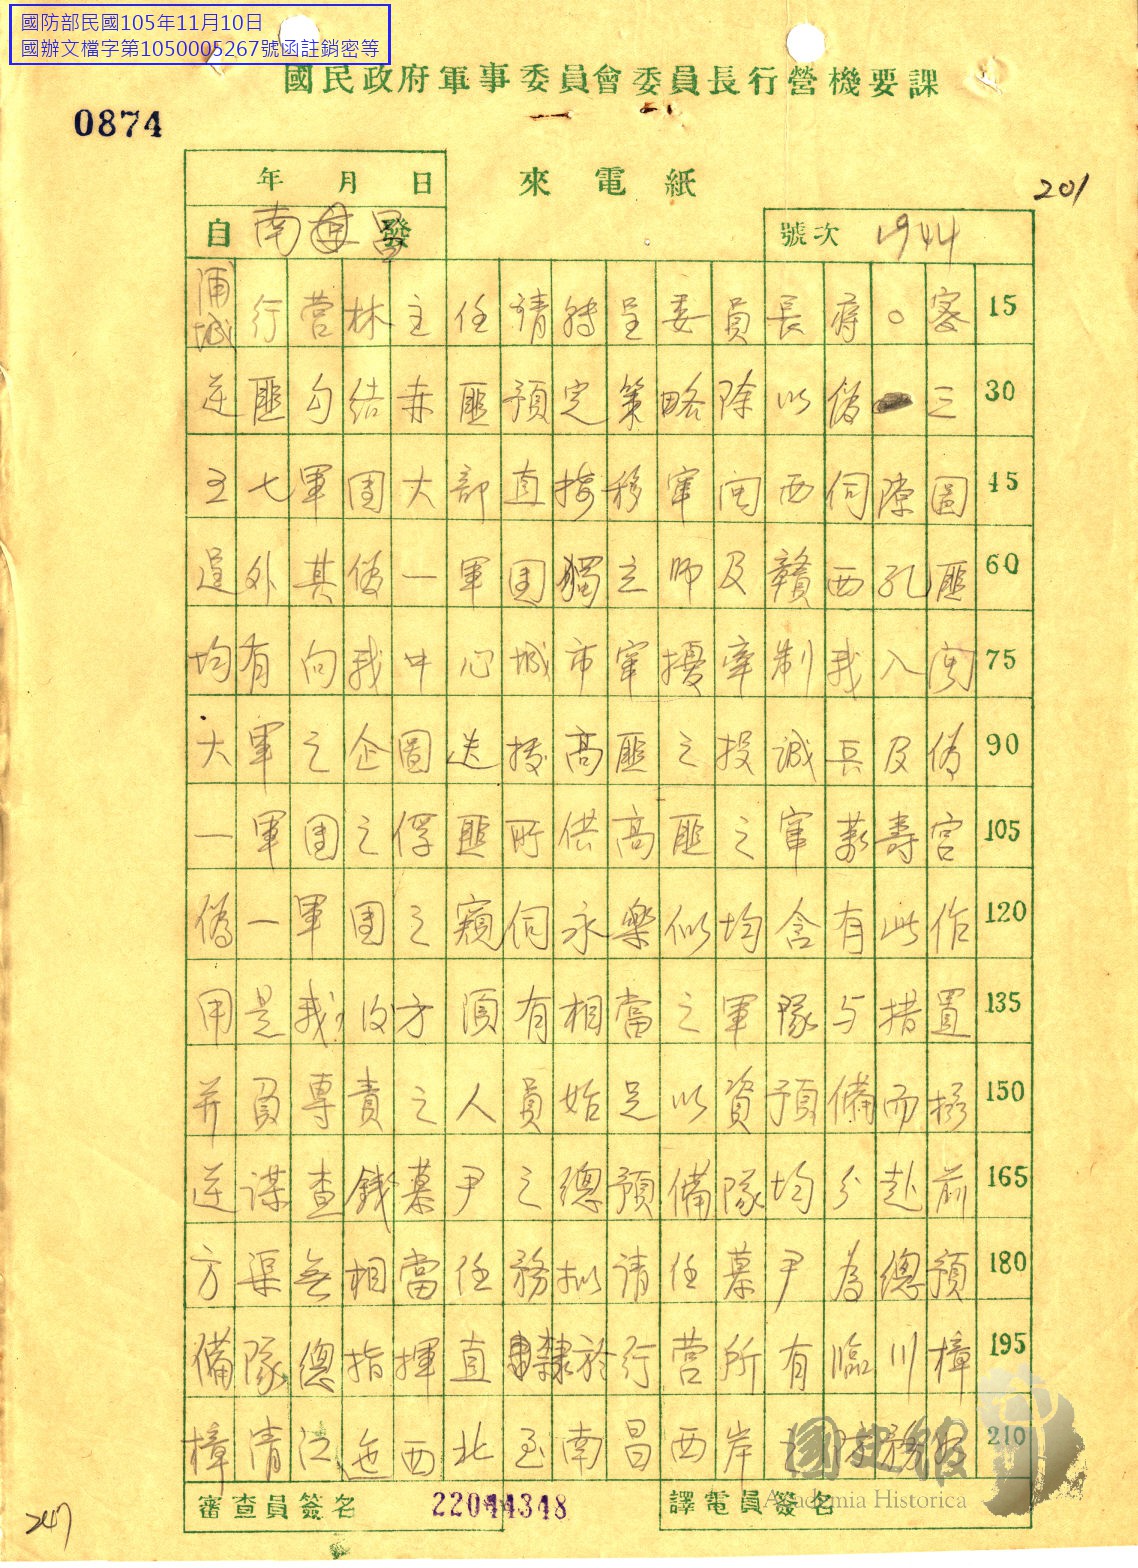 國防部民國105年11月10日
國辦文檔字第1050005267號函註銷密等
國民政府軍事委員會委員長行營機要課
0874
年 月 日
來電紙
201
自 南昌 發
號次 1944
浦城行营林主任請轉呈委員長蔣○密 15
逆匪勾结赤匪預定策略除以偽三 30
五七軍團大部直接移窜闽西伺隙圖 45
逞外其偽一軍团獨立师及贛西孔匪 60
均有向我中心城市窜擾牽制我入闽 75
大軍之企圖迭接高匪之投誠兵及偽 90
一軍团之俘匪所供高匪之窜萬壽宫 105
偽一軍團之窺伺永樂似均含有此作 120
用是我後方須有相當之軍隊与措置 135
并負專責之人員始足以資預備而 150
逆谋查錢慕尹之總預備隊均分赴前 165
方渠無相當任務拟请任慕尹為總預 180
備隊總指揮直隸於行营所有臨川樟 195
樟清江迤西北至南昌西岸之防務 210
審查員簽名
22044348
譯電員簽名
國史館
Academia Historica
247